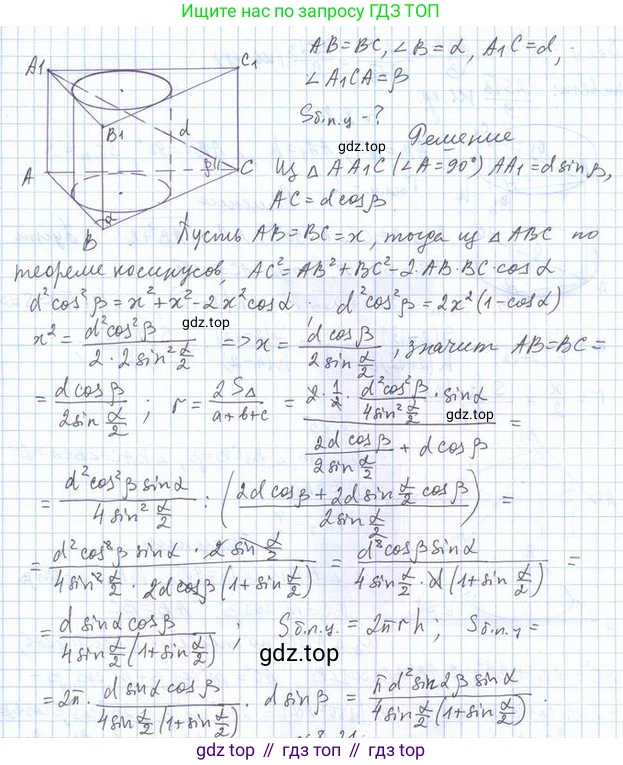 Ищите нас по запросу ГДЗ ТОП
A₁ C₁ B₁ d A β C α B
AB=BC, ∠B=α, A₁C=d,
∠A₁CA=β
Sб.п.ц -?
gdz.top
Решение
Из △ AA₁C (∠A=90°) AA₁=d sinβ,
AC=d cosβ.
Пусть AB=BC=x, тогда из △ ABC по
теореме косинусов, AC²=AB²+BC²-2·AB·BC·cos α
d²cos²β=x²+x²-2x²cosα; d²cos²β=2x²(1-cosα)
x²= d²cos²β / (2·2sin² α/2) => x= d cosβ / (2sin α/2), значит AB=BC=
= d cosβ / (2sin α/2); r= 2S△ / (a+b+c) = (2·1/2· d²cos²β / (4sin² α/2) ·sinα) / (2d cosβ / (2sin α/2) + d cosβ) =
gdz.top
= d²cos²β sinα / (4sin² α/2) : ((2d cosβ+2d sin α/2 cosβ) / (2sin α/2)) =
= d²cos²β sinα · 2sin α/2 / (4sin² α/2 · 2d cosβ(1+sin α/2)) = d²cosβ sinα / (4sin α/2 · d(1+sin α/2)) =
= d sinα cosβ / (4sin α/2 (1+sin α/2)); Sб.п.ц. = 2πrh; Sб.п.ц =
gdz.top
= 2π· d sinα cosβ / (4sin α/2 (1+sin α/2)) · d sinβ = πd²sin2β sinα / (4sin α/2 (1+sin α/2)).
gdz.top // гдз.топ // gdz.top